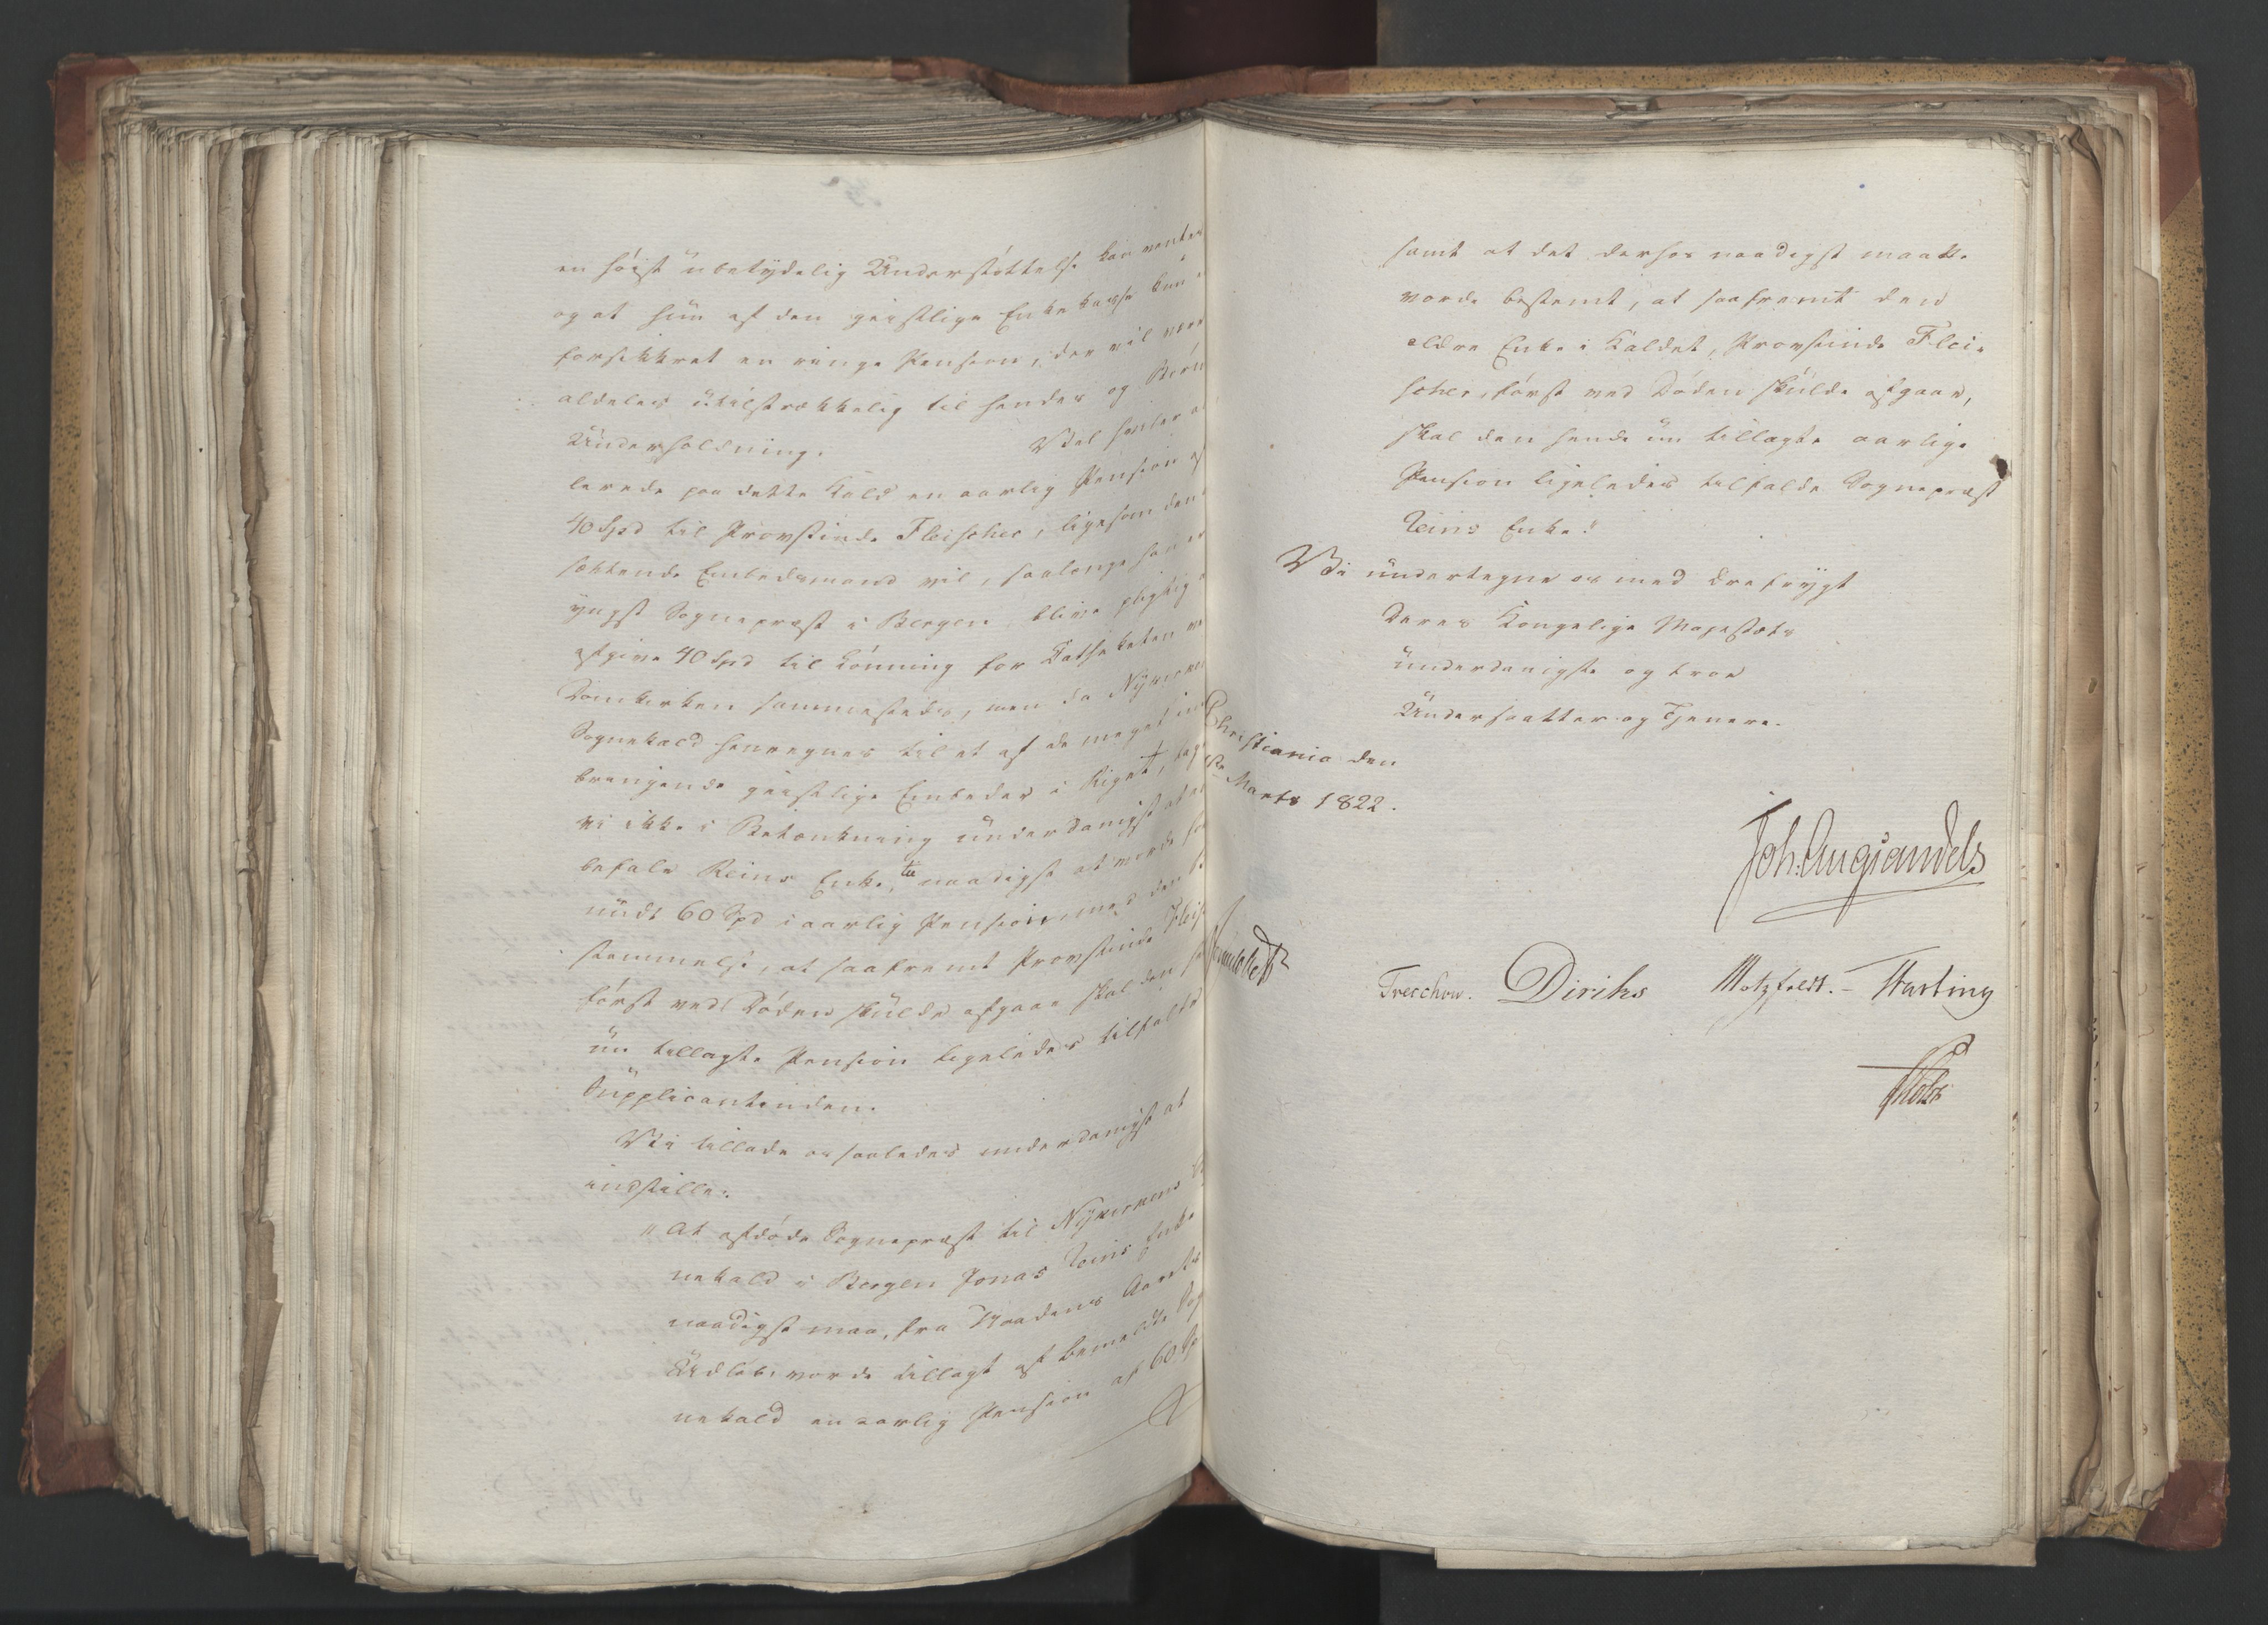 en höist ubetydelig Understöttelse kan ventes
og at hun af den geistlige Enkekasse kun
forsikkret en ringe Pension, der vil være
aldeles utilstrækkelig til hendes og Börns
Underholdning. Vel hviler
lerede paa dette Kald en aarlig Pension af
40 Spd til Provstinde Fleischer, ligesom den
sættende Embedsmand vil, saalænge han er
yngst Sognepræst i Bergen blive pligtig
afgive 40 Spd til Lönning for Catheketen ve
Domkirken sammesteds, men da Nykirkens
Sognekald henregnes til et af de meget ind
bringende geistlige Embeder i Riget, tage
vi ikke i Betænkning underdanigst at
befale Reins Enke, til naadigst at vorde
undt 60 Spd i aarlig Pension, med den Be
stemmelse, at saafremt Provstinde Fleis
först ved Döden skulde afgaae skal den
nu tillagte Pension ligeledes tilfalde
Supplicantinden.
Vi tillade os saaledes underdanigst at
indstille:
"At afdöde Sognepræst til Nykirkens
nekald i Bergen Jonas Reins Enke
naadigst maa, fra Naadens Aarets
Udlöb, vorde tillagt af bemeldte Sog
nekald en aarlig Pension af 60 Sp
samt at det derhos naadigst maatte
vorde bestemt, at saafremt den
ældre Enke i Kaldet, Provstinde Flei-
scher, först ved Döden skulde afgaae,
skal den hende nu tillagte aarlige
Pension ligeledes tilfalde Sognepræst
Reins Enke."
Vi undertegne os med Ærefrygt
Deres Kongelige Majestæts
underdanigste og troe
Undersaatter og Tjenere.
Christiania den
Marts 1822.
Joh. Aug Sandels
Sommerhielm
Treschow. Diriks Motzfeldt. Harting
Holst